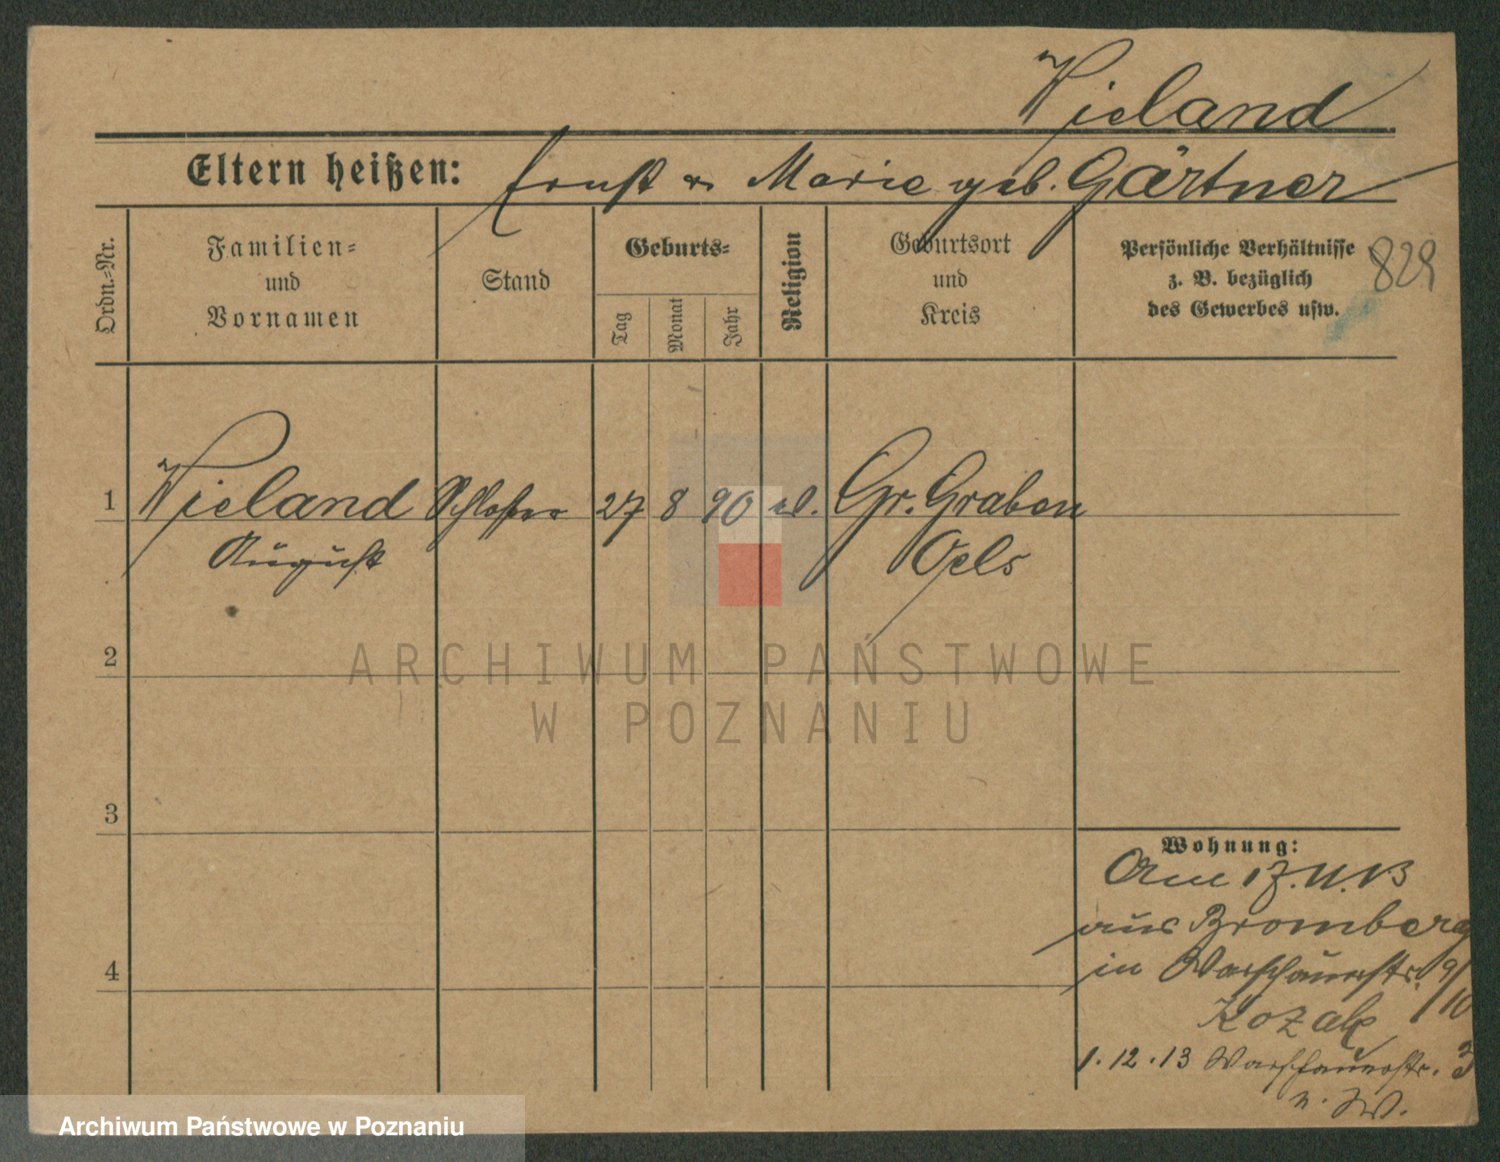 Wieland
Eltern heißen: Ernst u Marie geb. Gärtner
Ordn.=Nr.
Familien=
und
Vornamen
Stand
Geburts=
Tag
Monat
Jahr
Religion
Geburtsort
und
Kreis
Persönliche Verhältnisse
z. B. bezüglich
des Gewerbes usw.
829
1 Wieland Schlosser 27 8 90 Gr. Graben
August Oels
2
3
4
Wohnung:
Am 17.11.13
aus Bromberg
in Warschauerstr. 9/10
Kozak
1.12.13 Warschauerstr. 3
ARCHIWUM PAŃSTWOWE
W POZNANIU
Archiwum Państwowe w Poznaniu